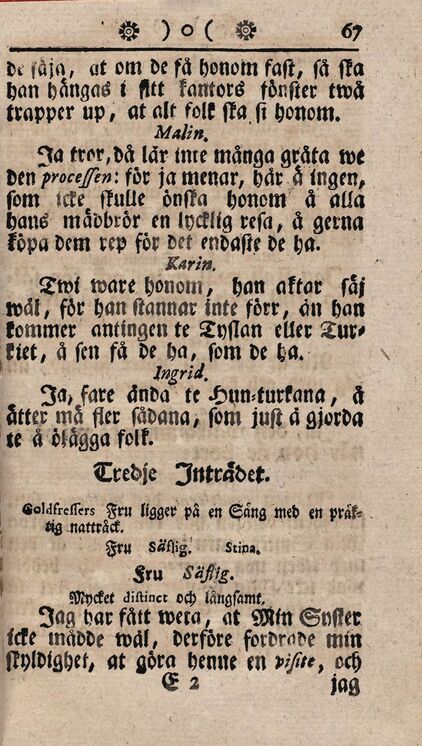 ) o ( 67
de säja, at om de få honom fast, så ska
han hängas i sitt kantors fönster twå
trapper up, at alt folk ska si honom.
Malin.
Ja tror, då lär inte många gråta we
den processen: för ja menar, här å ingen,
som icke skulle önska honom å alla
hans mädbrör en lycklig resa, å gerna
köpa dem rep för det endaste de ha.
Karin.
Twi ware honom, han aktar säj
wäl, för han stannar inte förr, än han
kommer antingen te Tyslan eller Tur-
kiet, å sen få de ha, som de ha.
Ingrid.
Ja, fare ända te Hun-turkana, å
ätter må fler sådana, som just å gjorda
te å ölägga folk.
Tredje Inträdet.
Goldfressers Fru ligger på en Säng med en präk-
tig nattråck.
Fru Säflig. Stina.
Fru Säflig.
Mycket distinct och långsamt.
Jag har fått weta, at Min Syster
icke mådde wäl, derföre fordrade min
skyldighet, at göra henne en visite, och
E 2 jag